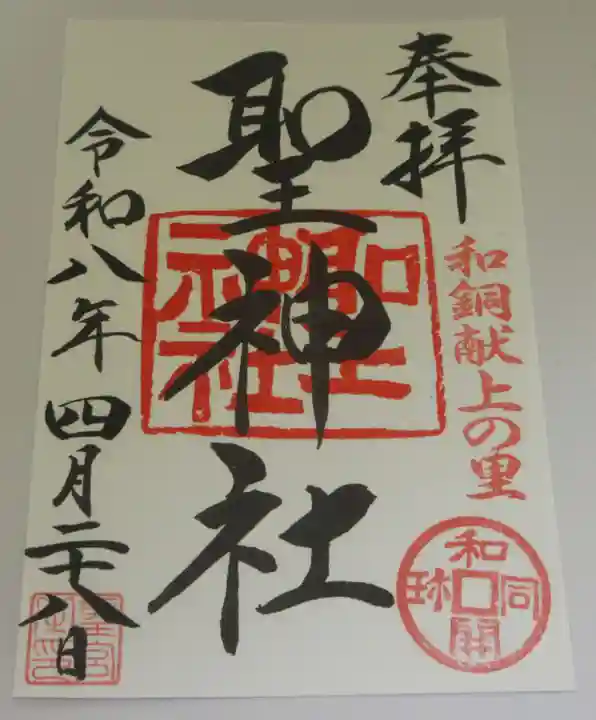 奉拝
和銅献上の里
和同開珎
聖神社
聖神社
令和八年四月二十八日